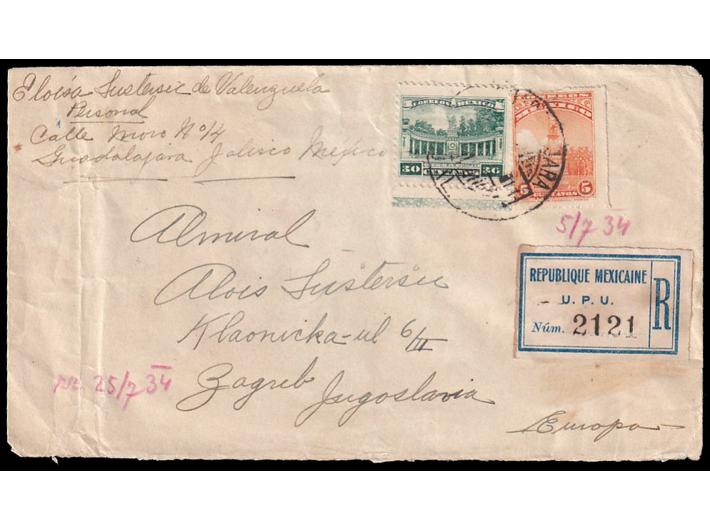 Eloisa Sustersic de Valenzuela
Personal
Calle Moro Nº 14
Guadalajara Jalisco Mexico
CORREOS MEXICO
30 30
CORREOS
MEXICO
5 5
JARA
5/7 34
Almiral
Alois Sustersic
Klaonicka-ul 6/II
Zagreb Jugoslavia
Europa
REPUBLIQUE MEXICAINE
U. P. U.
Núm. 2121
R
25/7 34